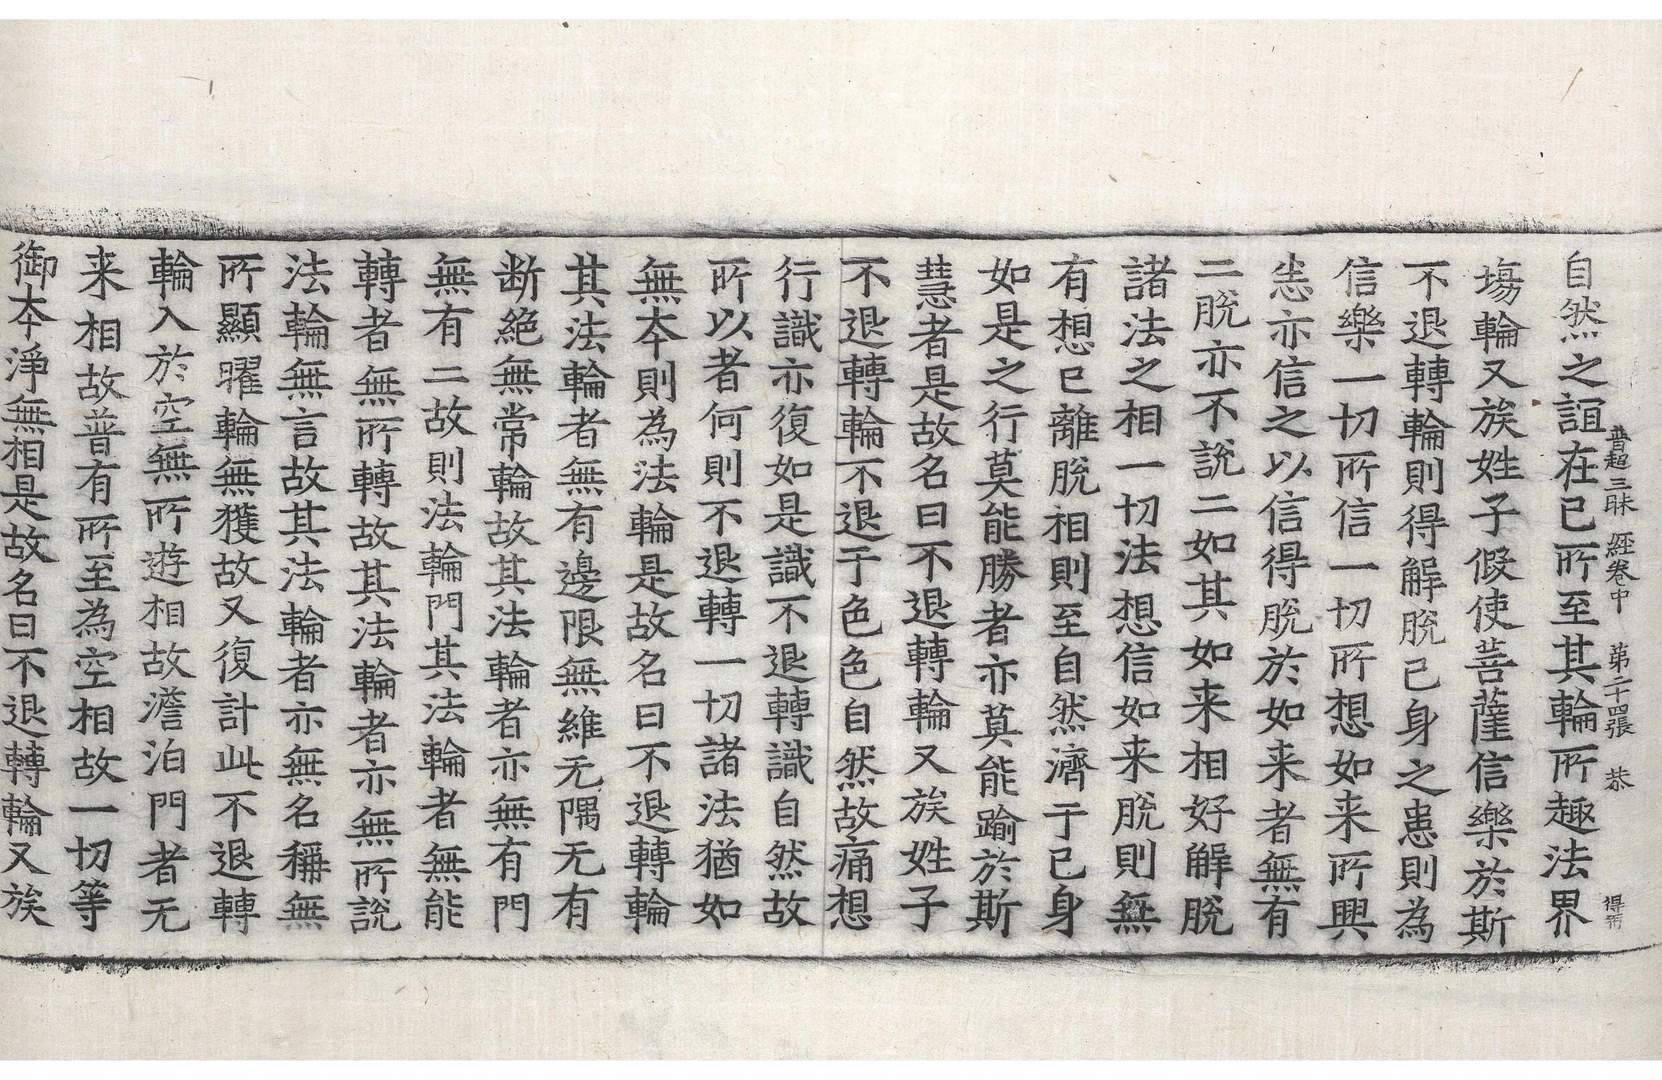 普超三昧経卷中　第二十四張　恭
自然之誼在已所至其輪所趣法界
塲輪又族姓子假使菩薩信樂於斯
不退轉輪則得解脫已身之患則為
信樂一切所信一切所想如来所興
恙亦信之以信得脫於如来者無有
二脫亦不說二如其如来相好解脫
諸法之相一切法想信如来脫則無
有想已離脫相則至自然濟于已身
如是之行莫能勝者亦莫能踰於斯
慧者是故名曰不退轉輪又族姓子
不退轉輪不退于色色自然故痛想
行識亦復如是識不退轉識自然故
所以者何則不退轉一切諸法猶如
無本則為法輪是故名曰不退轉輪
其法輪者無有邊限無維无隅无有
断絕無常輪故其法輪者亦無有門
無有二故則法輪門其法輪者無能
轉者無所轉故其法輪者亦無所說
法輪無言故其法輪者亦無名稱無
所顯曜輪無獲故又復計此不退轉
輪入於空無所遊相故澹泊門者无
来相故普有所至為空相故一切等
御本淨無相是故名曰不退轉輪又族